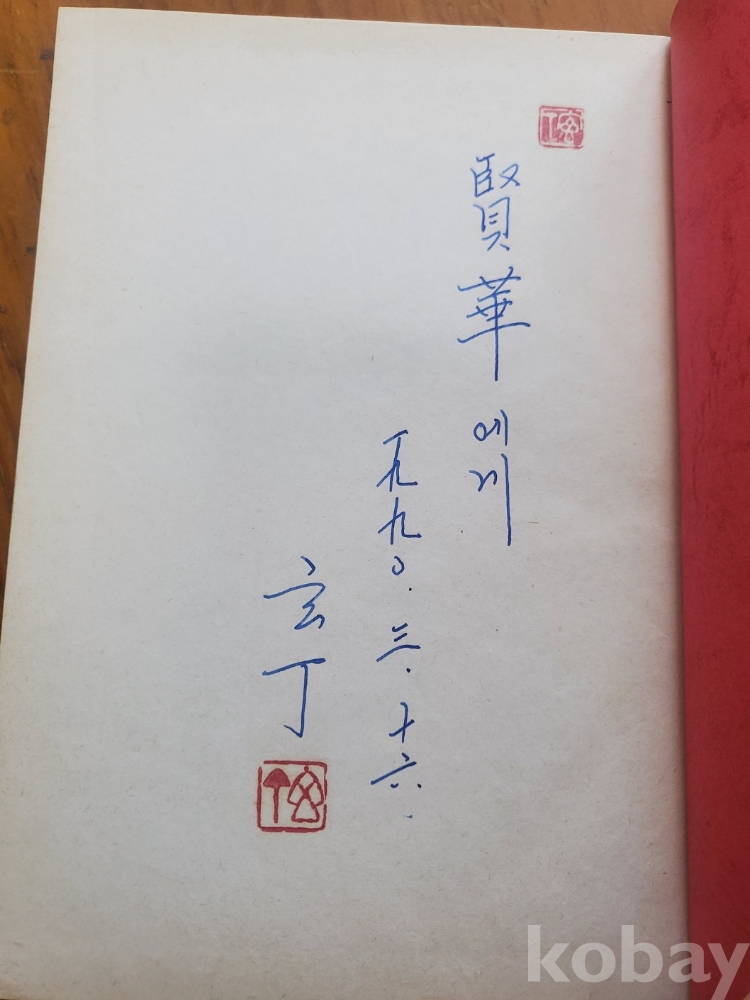 賢華 에게
一九九○. 三. 十六.
玄丁
kobay